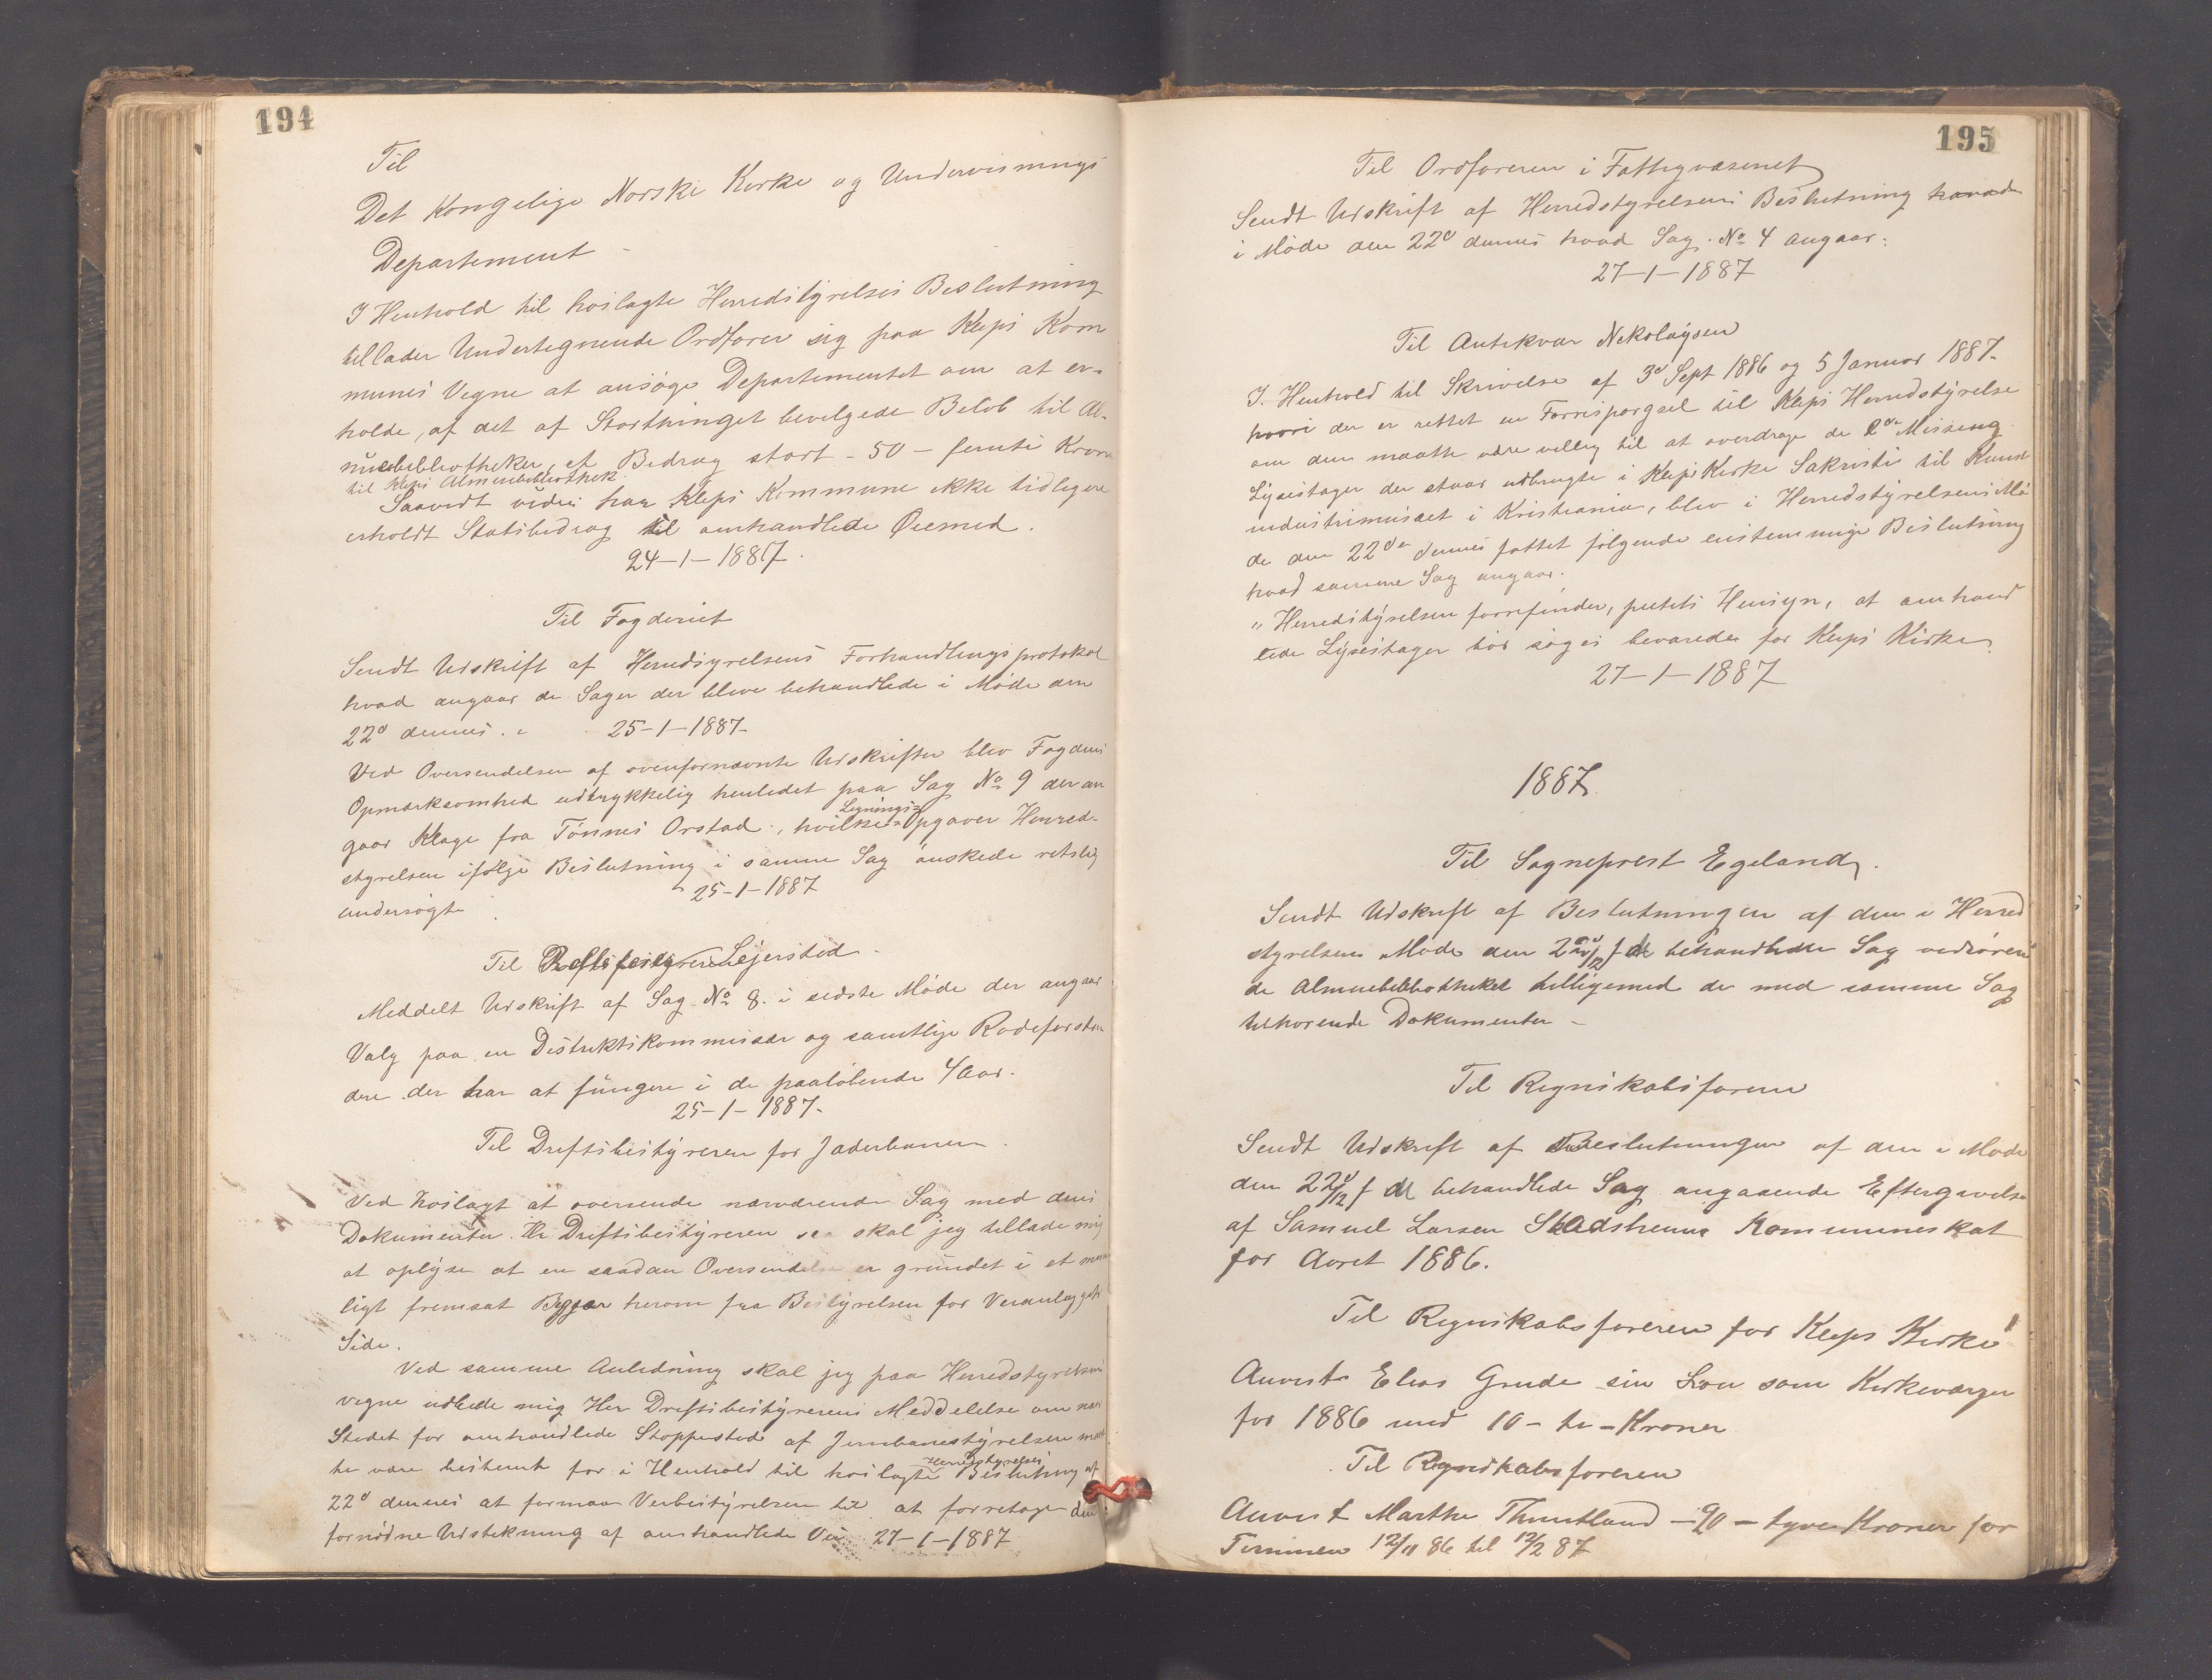 194
Til
Det Kongelige Norske Kirke og Undervisnings
Departement
I Henhold til hoslagte Herredstyrelses Beslutning
tillader Undertegnende Ordfører sig paa Kleps Kom
munes Vegne at ansøge Departementet om at er-
holde, af det af Storthinget bevilgede Beløb til Al-
muebibliotheker, et Bidrag stort - 50 - femti Kroner
til Kleps Almuebibliothek
Saavidt vides har Kleps Kommune ikke tidligere
erholdt Statsbidrag til omhandlede Øiemed.
24-1-1887.
Til Fogderiet
Sendt Udskrift af Herredsyrelsens Forhandlingsprotokol
hvad angaar de Sager der bleve behandlede i Møde den
22d dennes. 25-1-1887-
Ved Oversendelsen af ovenfornævnte Udskrifter blev Fogdens
Opmærksomhed udtrykkelig henledet paa Sag No 9 der an
gaar Klage fra Tønnes Orstad, hvilke Ligningsopgaver Herred-
styrelsen ifølge Beslutning i samme Sag ønskede retslig
undersøgte 25-1-1887
Til Lejerstod
Meddelt Udskrift af Sag No 8. i sidste Møde der angaar
Valg paa en Distriktskommissær og samtlige Rodeforstan
dere der har at fungere i de paaløbende 4 Aar.
25-1-1887-
Til Driftsbestyreren for Jæderbanen.
Ved hoslagt at oversende nærværende Sag med dens
Dokumenter Hr Driftsbestyreren saa skal jeg tillade mig
at oplyse at en saadan Oversendelse er grundet i et mund
ligt fremsat Begjær herom fra Bestyrelsen for Veranlæggets
Side.
Ved samme Anledning skal jeg paa Herredstyrelsens
vegne udbede mig Her Driftsbestyrerens Meddelelse om naar
Stedet for omhandlede Stoppested af Jernbanestyrelsen maat
te være bestemt for i Henhold til hoslagte Herredstyrelses Beslutning af
22d dennes at formaa Veibestyrelsen til at forretage den
fornødne Udstikning af omhandlede Vei 27-1-1887
195
Til Ordføreren i Fattigvæsenet
Sendt Udskrift af Herredstyrelsens Beslutning hvad
i Møde den 22d dennes hvad Sag. No 4 angaar:
27-1-1887
Til Antikvar Nikolaysen
I. Henhold til Skrivelse af 3d Sept 1886 og 5 Januar 1887.
hvori der er rettet en Forrispørgsel til Kleps Herredstyrelse
om den maatte være villig til at overdrage de 2de Messing
Lysestager der staar udbrugte i Kleps Kirke Sakristi til Kunst
industrimusæet i Kristiania, blev i Herredstyrelsens Mø
de den 22de dennes fattet følgende enstemmige Beslutning
hvad samme Sag angaar.
"Herredstyrelsen forrefinder, pietets Hensyn, at omhand
lede Lysestager bør søges bevarede for Kleps Kirke
27-1-1887
1887
Til Sogneprest Egeland.
Sendt Udskrift af Beslutningen af den i Herred
styrelsens Møde den 22d/12 f A behandlede Sag vedrøren
de Almuebibliotheket tilligemed de med samme Sag
tilhørende Dokumenter -
Til Regnskabsføreren
Sendt Udskrift af Beslutningen af den i Møde
den 22d/12 f A behandlede Sag angaaende Eftergivelse
af Samuel Larsen Stadsheims Kommuneskat
for Aaret 1886.
Til Regnskabsføreren for Kleps Kirke
Anvist Elias Grude sin Løn som Kirkeværger
for 1886 med 10 - ti - Kroner
Til Regnskabsføreren
Anvist Marthe Thuutland - 20 - tyve Kroner for
Terminen 12/11 86 til 12/2 87